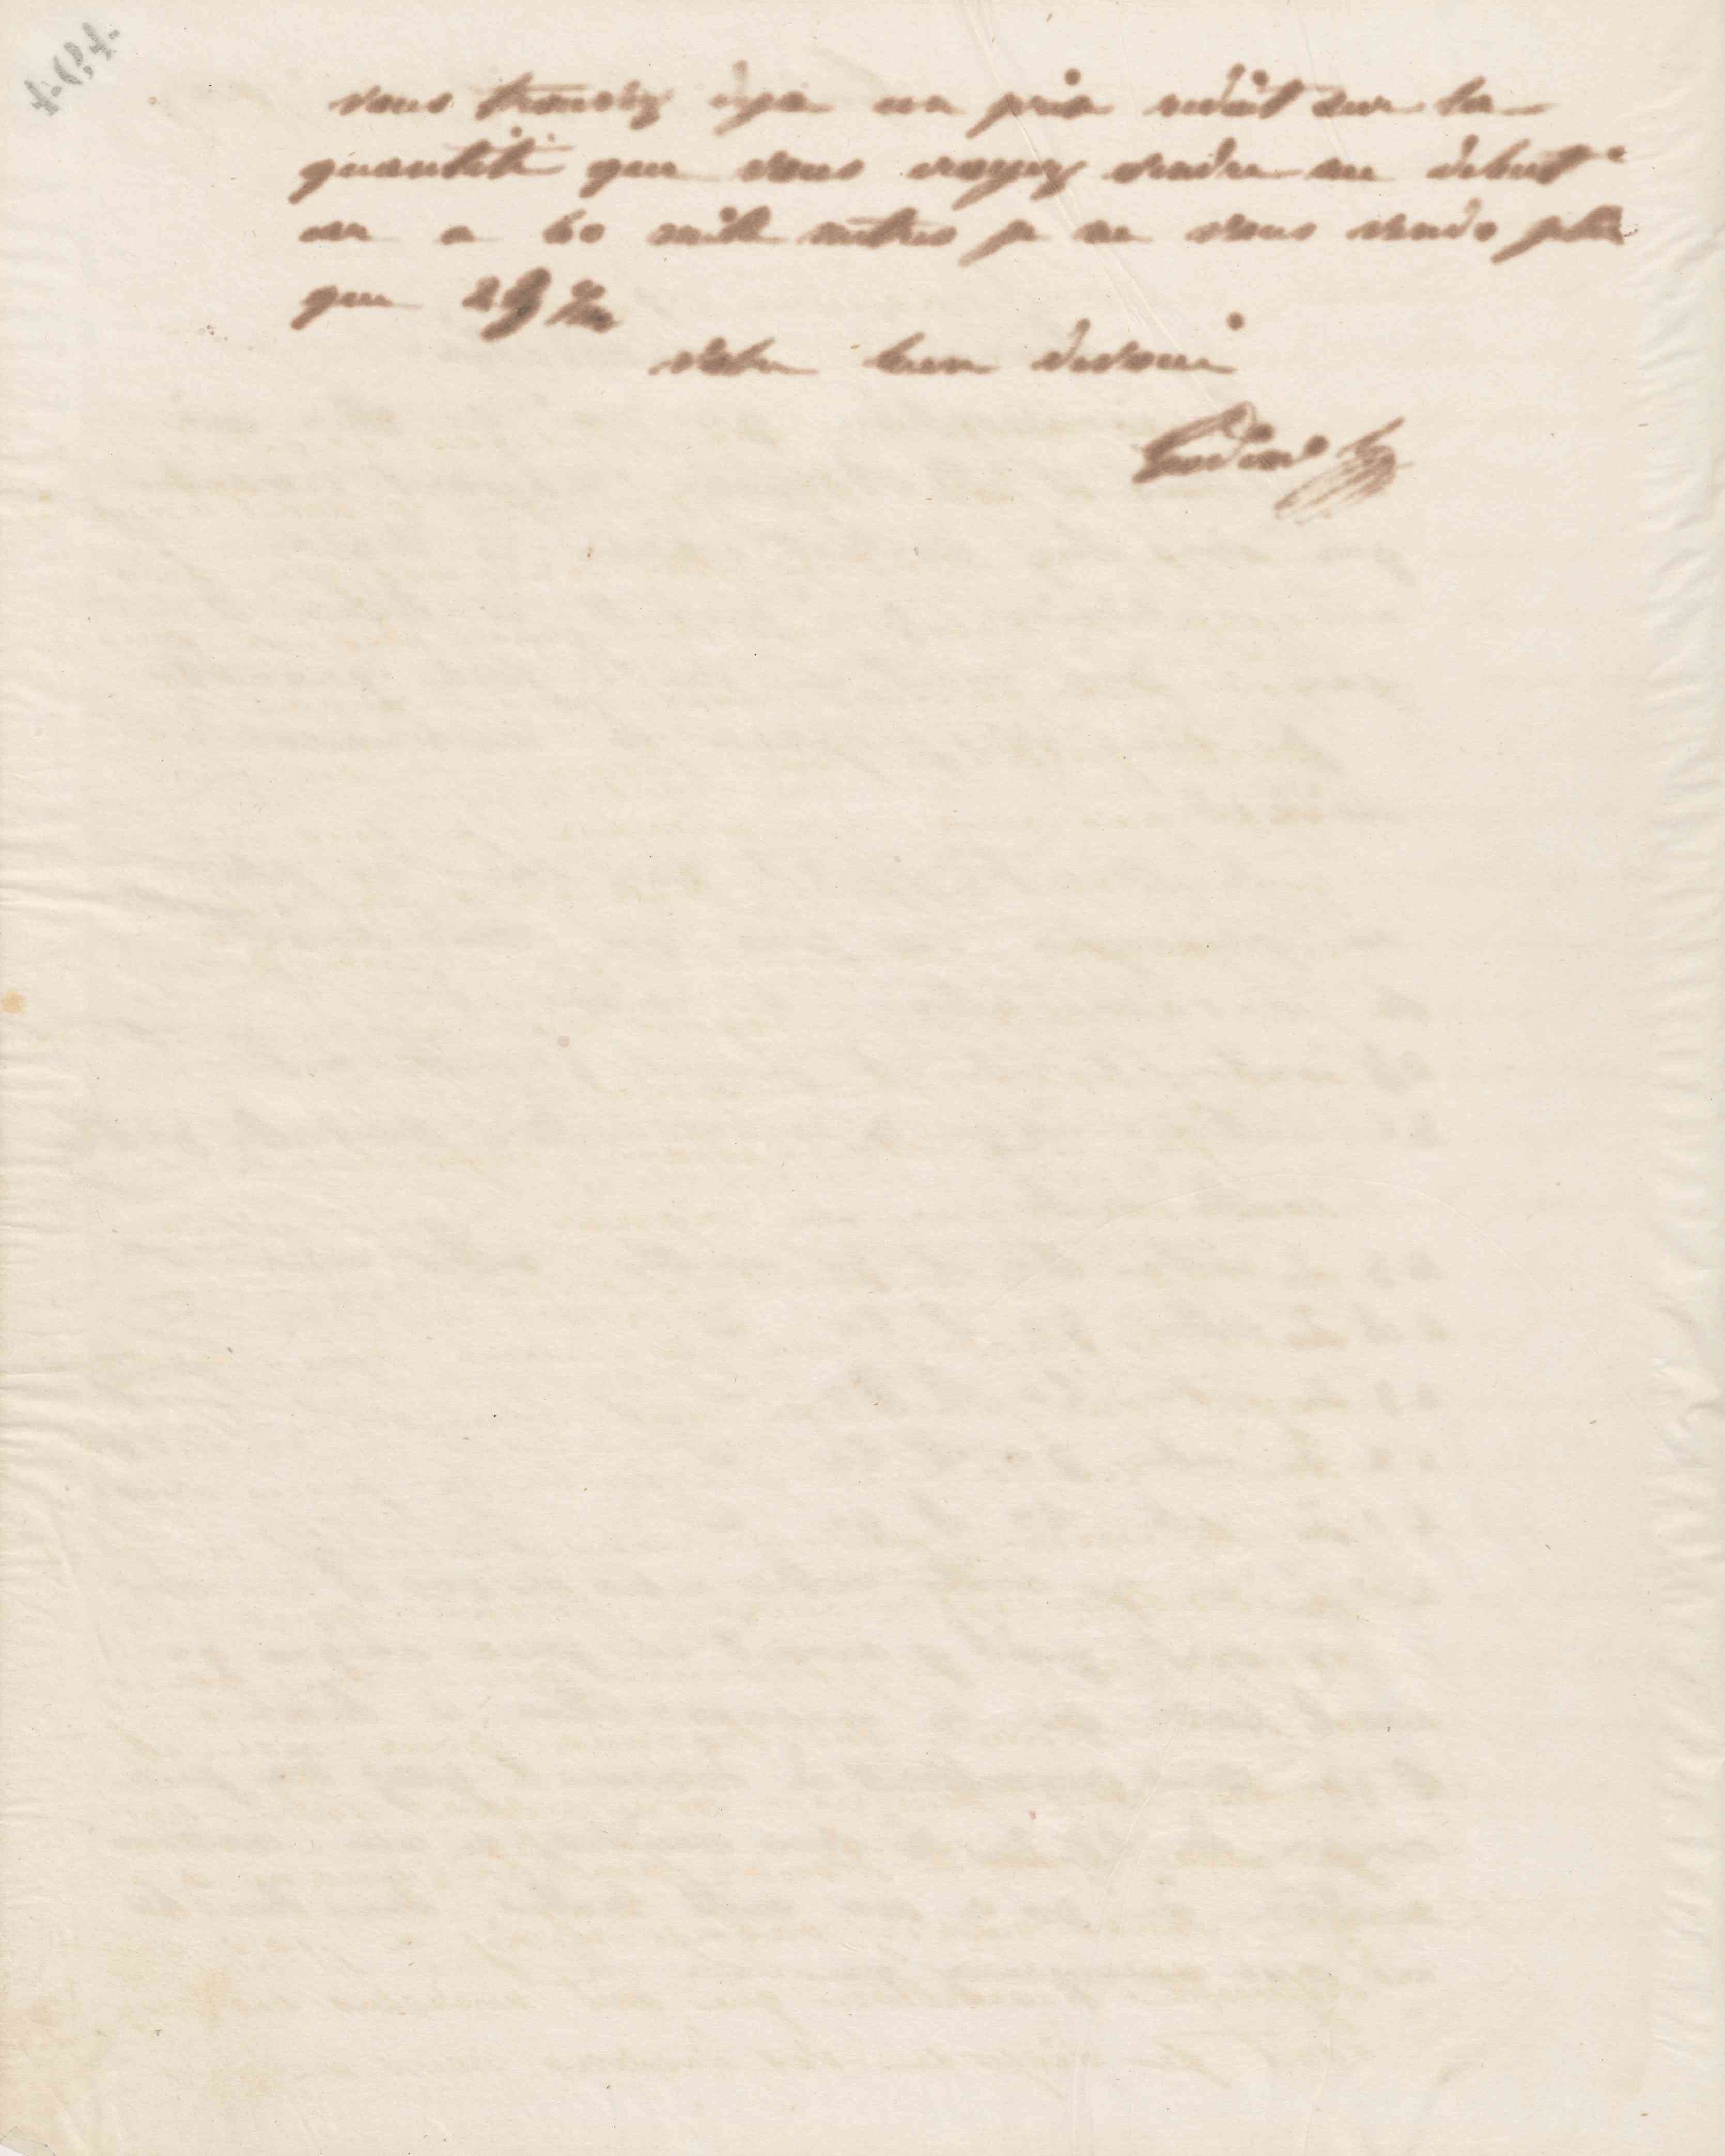 vous trouviez deja un prix reduit sur la
quantité que vous croyez vendre au debut
car a 60 mille metres je ne vous vends plus
que 29
votre bien devoué
Godin